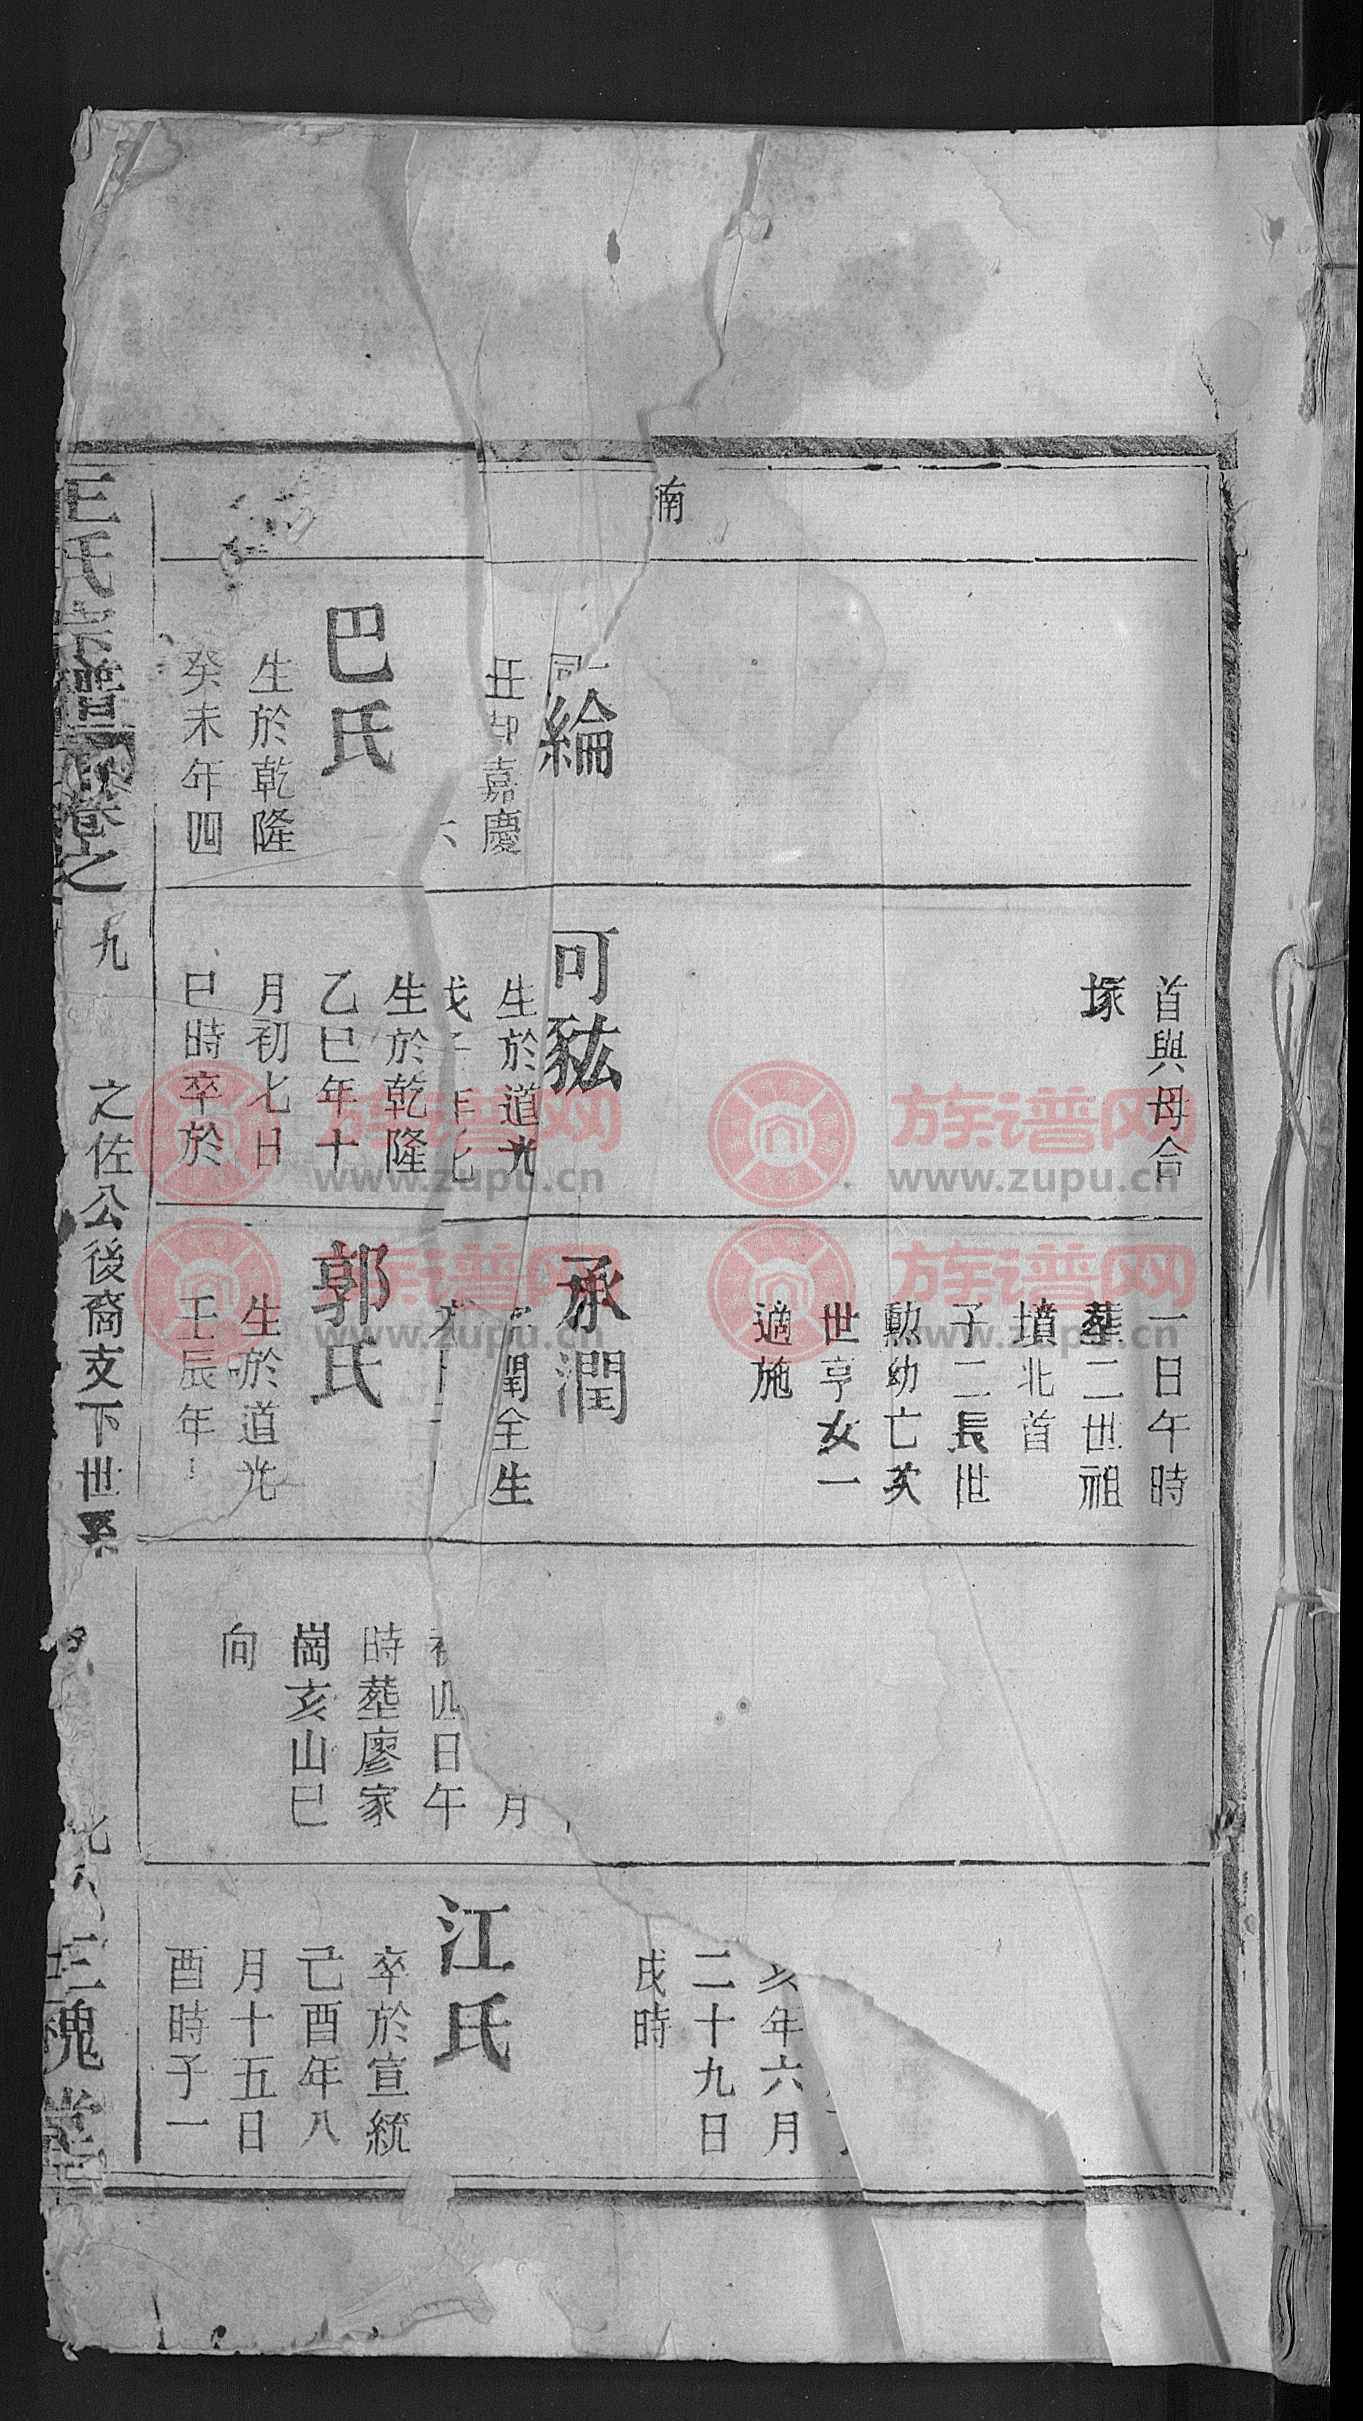 湳
綸
嘉慶
六
巴氏
生於乾隆
癸未年四
首與母合
塚
可紘
生於道光
生於乾隆
乙巳年十
月初七日
巳時卒於
一日午時
葬二世祖
墳北首
子二長世
勲幼亡次
世亨女一
適施
承潤
閏全生
郭氏
生於道光
壬辰年
月
四日午
時葬廖家
崗亥山巳
向
亥年六月
二十九日
戌時
江氏
卒於宣統
己酉年八
月十五日
酉時子一
王氏宗譜
卷之九
之佐公後裔支下世系
三槐堂
族谱网
www.zupu.cn
族谱网
www.zupu.cn
族谱网
www.zupu.cn
族谱网
www.zupu.cn